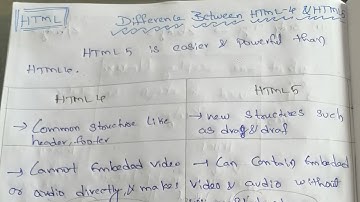 HTML
Difference Between HTML-4 & HTML5
HTML5 is easier & powerful than
HTML4.
HTML4
HTML5
→ Common structure like
header, footer
→ new structures such
as drag & draf
→ Cannot Embedad video
or audio directly, & makes
→ Can Contain Embedded
video & audio without